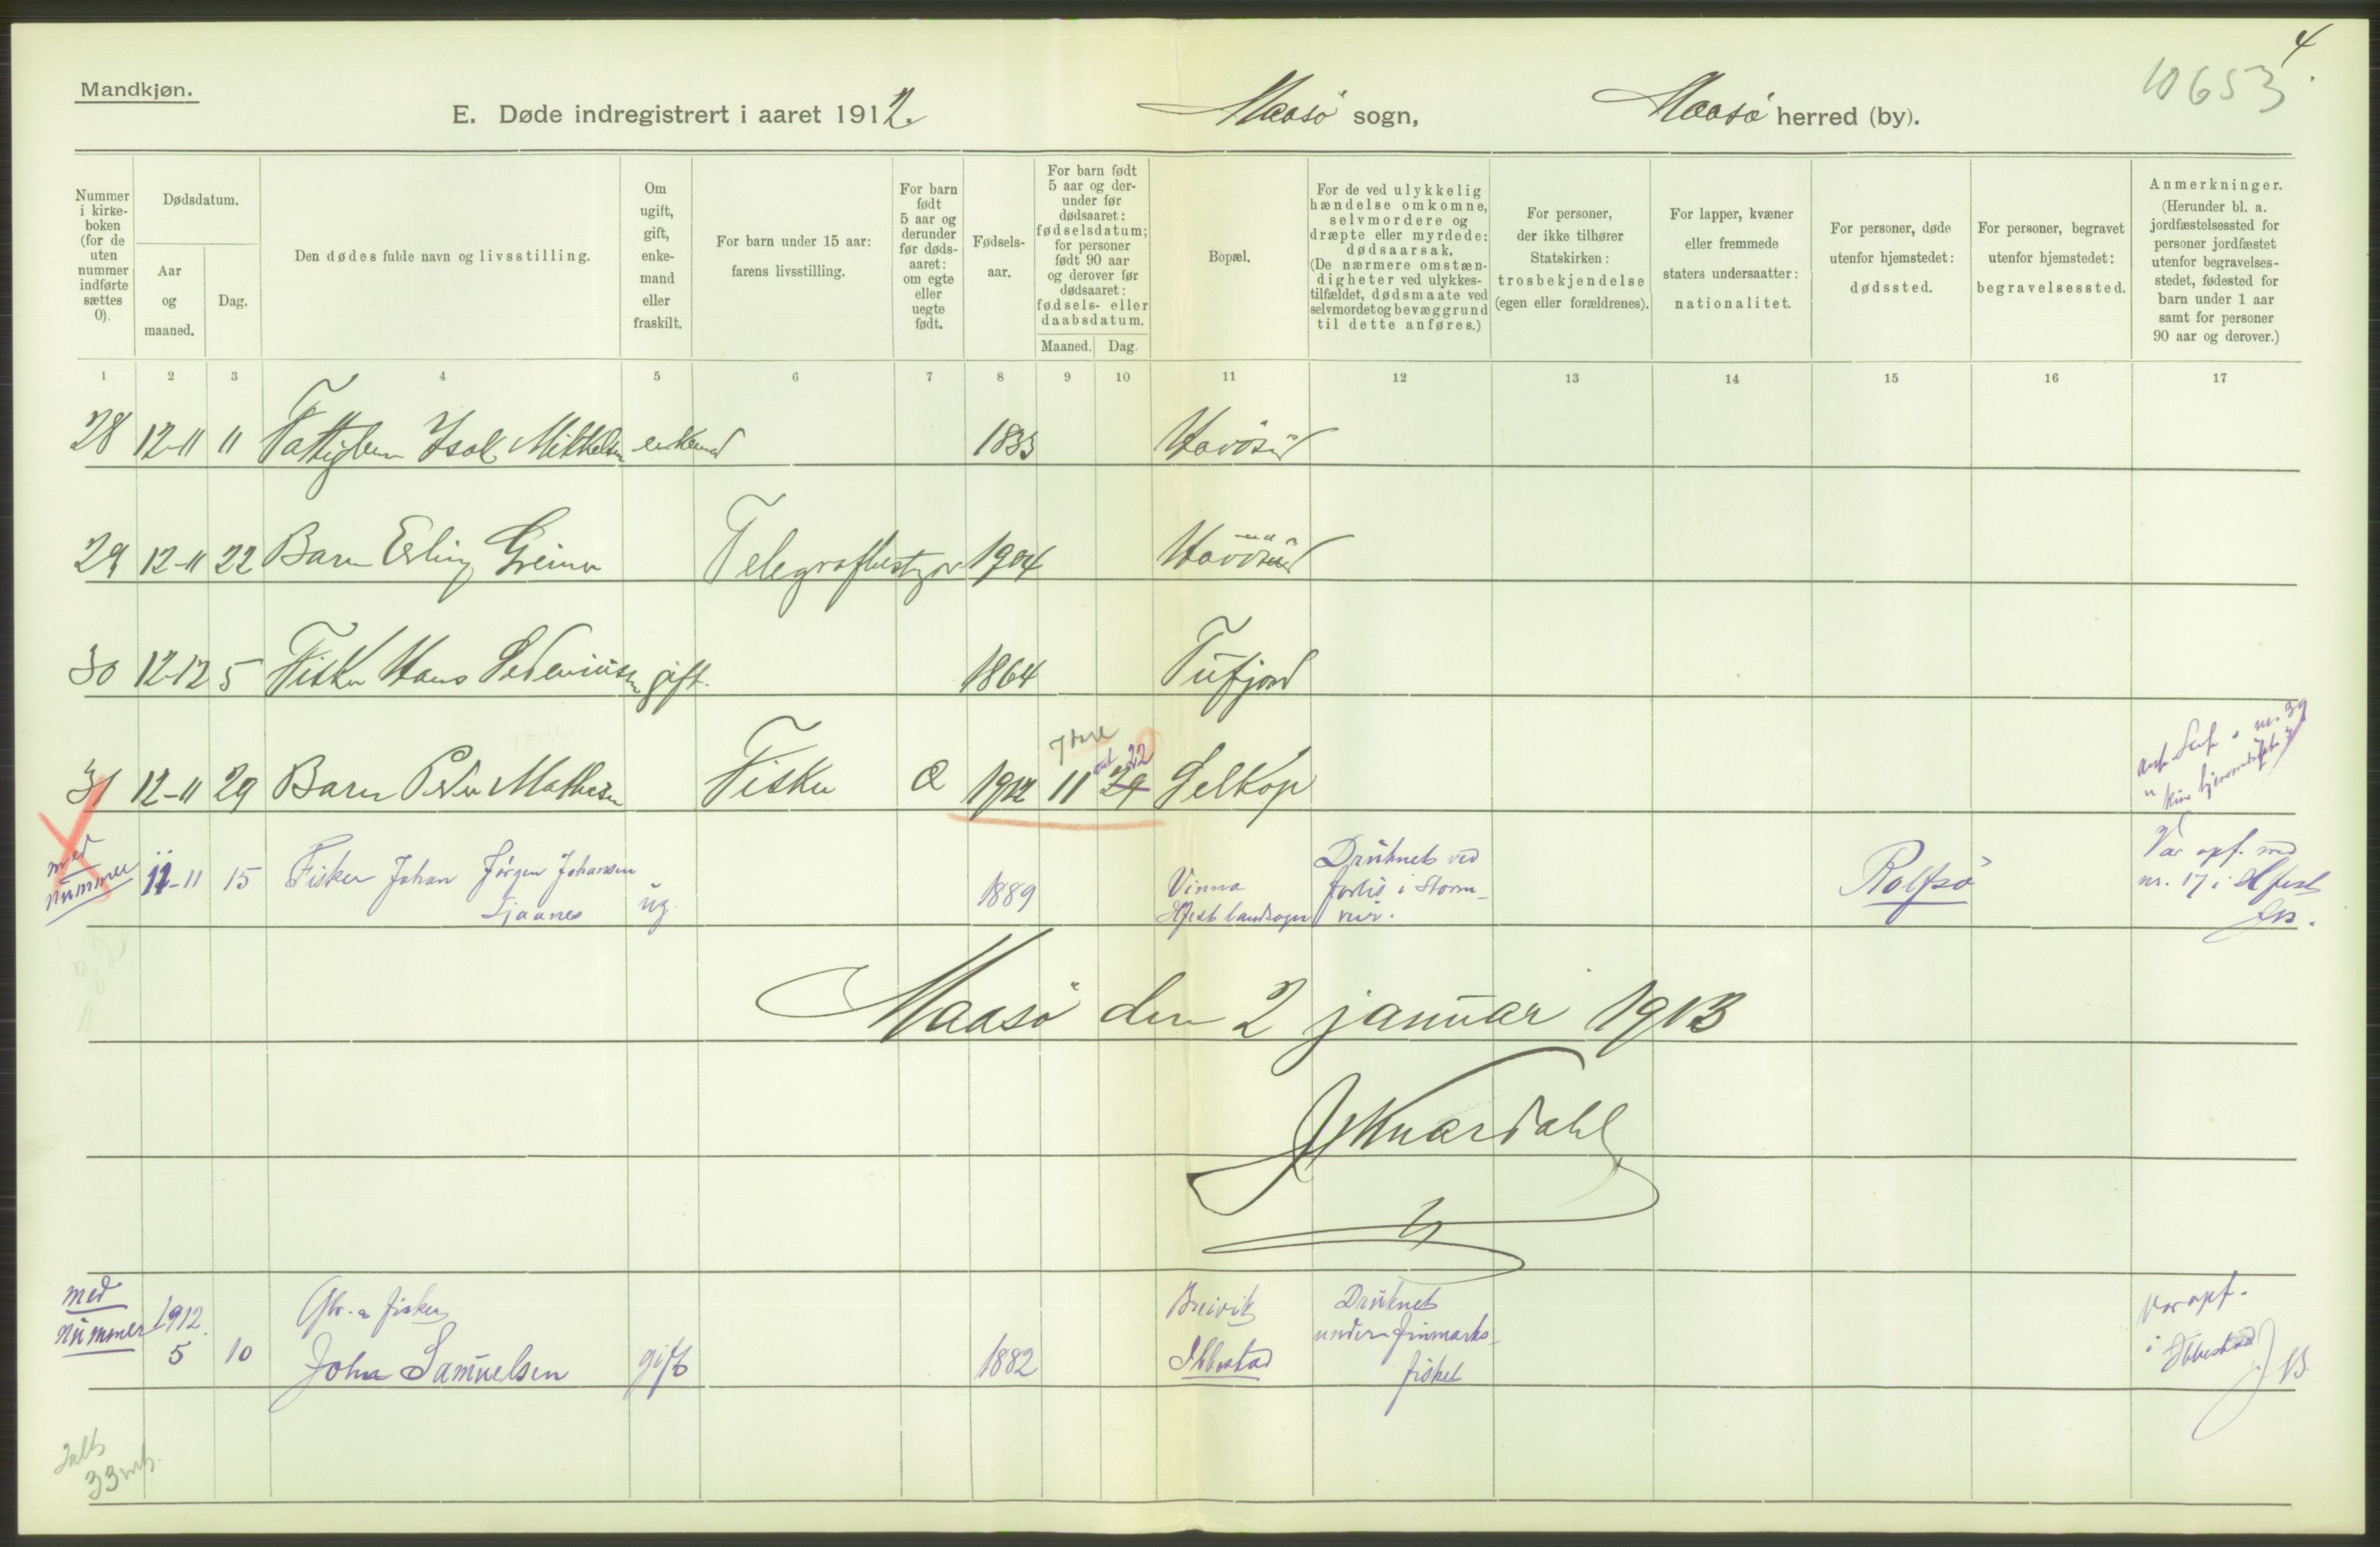 4
10653
Mandkjøn.
E. Døde indregistrert i aaret 1912. Maasö sogn, Maasö herred (by).
Nummer i kirke-boken (for de uten nummer indførte sættes 0).
Dødsdatum.
Aar og maaned.
Dag.
Den dødes fulde navn og livsstilling.
Om ugift, gift, enke-mand eller fraskilt.
For barn under 15 aar: farens livsstilling.
For barn født 5 aar og derunder før døds-aaret: om egte eller uegte født.
Fødsels-aar.
For barn født 5 aar og der-under før dødsaaret: fødselsdatum; for personer født 90 aar og derover før dødsaaret: fødsels- eller daabsdatum.
Maaned. Dag.
Bopæl.
For de ved ulykkelig hændelse omkomne, selvmordere og dræpte eller myrdede: dødsaarsak. (De nærmere omstæn-digheter ved ulykkes-tilfældet, dødsmaate ved selvmordet og bevæggrund til dette anføres.)
For personer, der ikke tilhører Statskirken: trosbekjendelse (egen eller forældrenes).
For lapper, kvæner eller fremmede staters undersaatter: nationalitet.
For personer, døde utenfor hjemstedet: dødssted.
For personer, begravet utenfor hjemstedet: begravelsessted.
Anmerkninger. (Herunder bl. a. jordfæstelsessted for personer jordfæstet utenfor begravelses-stedet, fødested for barn under 1 aar samt for personer 90 aar og derover.)
1 2 3 4 5 6 7 8 9 10 11 12 13 14 15 16 17
28 12-11 11 Fattiglem Isak Mikkelsen enkemd 1833 Havösund
29 12-11 22 Barn Erling Greiner Telegrafbestyrer 1904 Havösund
30 12-12 5 Fisker Hans Pedersen gift. 1864 Tufjord
22
31 12-11 29 Barn Peder Mathisen Fisker 1912 11 29 Selkop
med nummer 11-11 15 Fisker Johan Jörgen Johansen ug. 1889 Vinna Hfest landsogn Druknet ved forlis i Storm- Rolfsö Var opf. med nr. 17 i Hfest
Maasö den 2 januar 1913
Knardahl
med nummer 1912 5 10 fisker
John Samuelsen gift 1882 Breivik Ibbestad Druknet under finmarks-fisket Var opf. i Ibbestad
Ialt 33